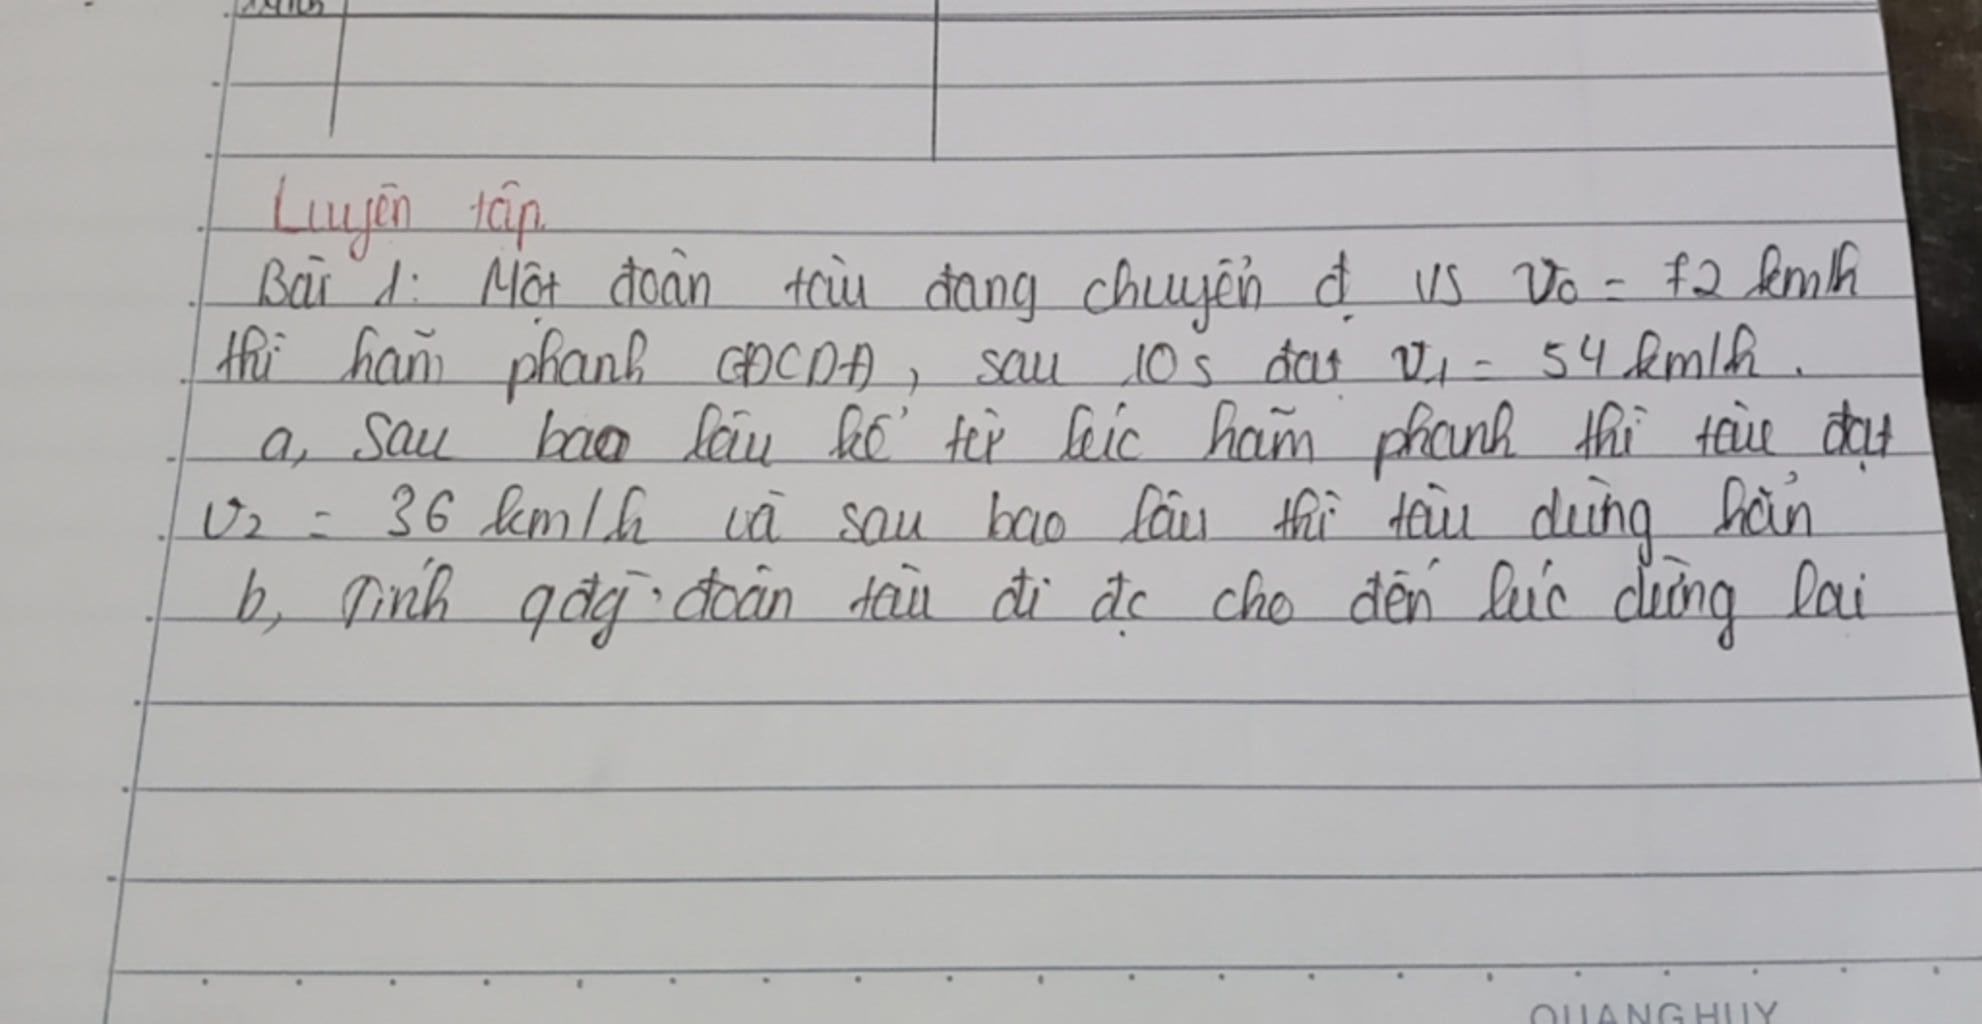 Luyện tập
Bài 1: Một đoàn tàu đang chuyển đ vs v₀ = 72 km/h
thì hãm phanh CĐCDĐ, sau 10s đạt v₁ = 54 km/h.
a, Sau bao lâu kể từ lúc hãm phanh thì tàu đạt
v₂ = 36 km/h và sau bao lâu thì tàu dừng hẳn
b, Tính qđg đoàn tàu đi đc cho đến lúc dừng lại
QUANG HUY